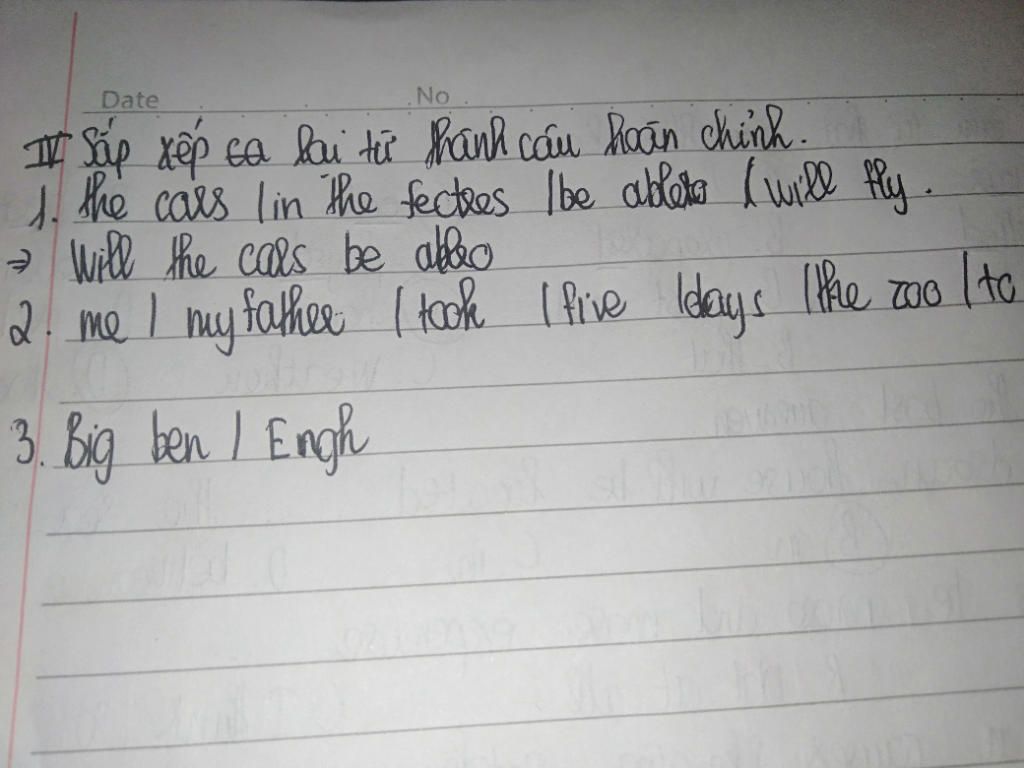 Date No
IV Sắp xếp lai từ thành câu hoàn chỉnh.
1. the cars / in the fectres / be able to / will fly.
⇒ Will the cars be able
2. me / my father / took / five / days / the zoo / to
3. Big ben / Engh